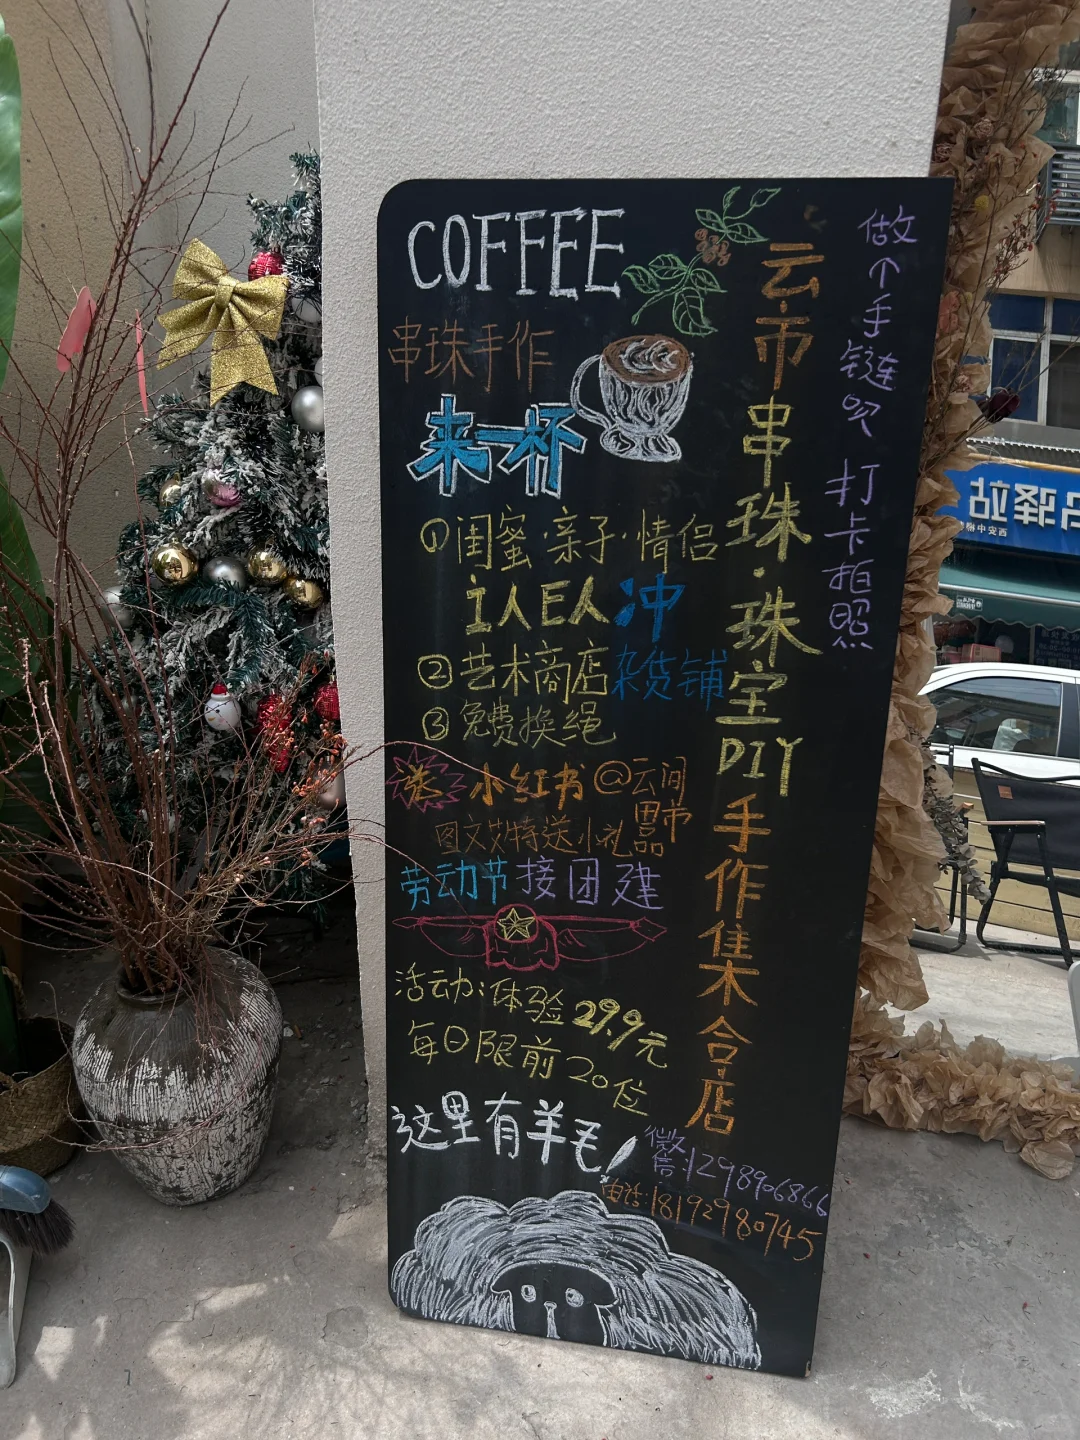 COFFEE
串珠手作
来一杯
①闺蜜·亲子·情侣
i人E人冲
②艺术商店杂货铺
③免费换绳
送 小红书@云间
图文艾特送小礼品
劳动节接团建
活动:体验29.9元
每日限前20位
这里有羊毛
微信:1298906866
电话:18192980745
云市串珠·珠宝DIY手作集合店
做个手链呗 打卡拍照
驿站